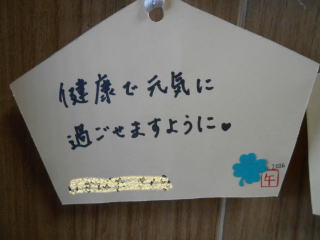 健康で元気に
過ごせますように。
2026
午